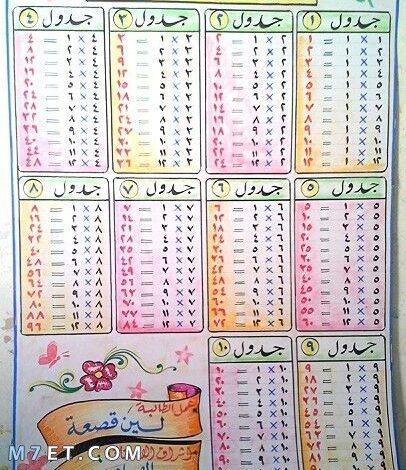 جدول ١
١ × ١ = ١
١ × ٢ = ٢
١ × ٣ = ٣
١ × ٤ = ٤
١ × ٥ = ٥
١ × ٦ = ٦
١ × ٧ = ٧
١ × ٨ = ٨
١ × ٩ = ٩
١ × ١٠ = ١٠
١ × ١١ = ١١
١ × ١٢ = ١٢
جدول ٢
٢ × ١ = ٢
٢ × ٢ = ٤
٢ × ٣ = ٦
٢ × ٤ = ٨
٢ × ٥ = ١٠
٢ × ٦ = ١٢
٢ × ٧ = ١٤
٢ × ٨ = ١٦
٢ × ٩ = ١٨
٢ × ١٠ = ٢٠
٢ × ١١ = ٢٢
٢ × ١٢ = ٢٤
جدول ٣
٣ × ١ = ٣
٣ × ٢ = ٦
٣ × ٣ = ٩
٣ × ٤ = ١٢
٣ × ٥ = ١٥
٣ × ٦ = ١٨
٣ × ٧ = ٢١
٣ × ٨ = ٢٤
٣ × ٩ = ٢٧
٣ × ١٠ = ٣٠
٣ × ١١ = ٣٣
٣ × ١٢ = ٣٦
جدول ٤
٤ × ١ = ٤
٤ × ٢ = ٨
٤ × ٣ = ١٢
٤ × ٤ = ١٦
٤ × ٥ = ٢٠
٤ × ٦ = ٢٤
٤ × ٧ = ٢٨
٤ × ٨ = ٣٢
٤ × ٩ = ٣٦
٤ × ١٠ = ٤٠
٤ × ١١ = ٤٤
٤ × ١٢ = ٤٨
جدول ٥
٥ × ١ = ٥
٥ × ٢ = ١٠
٥ × ٣ = ١٥
٥ × ٤ = ٢٠
٥ × ٥ = ٢٥
٥ × ٦ = ٣٠
٥ × ٧ = ٣٥
٥ × ٨ = ٤٠
٥ × ٩ = ٤٥
٥ × ١٠ = ٥٠
٥ × ١١ = ٥٥
٥ × ١٢ = ٦٠
جدول ٦
٦ × ١ = ٦
٦ × ٢ = ١٢
٦ × ٣ = ١٨
٦ × ٤ = ٢٤
٦ × ٥ = ٣٠
٦ × ٦ = ٣٦
٦ × ٧ = ٤٢
٦ × ٨ = ٤٨
٦ × ٩ = ٥٤
٦ × ١٠ = ٦٠
٦ × ١١ = ٦٦
٦ × ١٢ = ٧٢
جدول ٧
٧ × ١ = ٧
٧ × ٢ = ١٤
٧ × ٣ = ٢١
٧ × ٤ = ٢٨
٧ × ٥ = ٣٥
٧ × ٦ = ٤٢
٧ × ٧ = ٤٩
٧ × ٨ = ٥٦
٧ × ٩ = ٦٣
٧ × ١٠ = ٧٠
٧ × ١١ = ٧٧
٧ × ١٢ = ٨٤
جدول ٨
٨ × ١ = ٨
٨ × ٢ = ١٦
٨ × ٣ = ٢٤
٨ × ٤ = ٣٢
٨ × ٥ = ٤٠
٨ × ٦ = ٤٨
٨ × ٧ = ٥٦
٨ × ٨ = ٦٤
٨ × ٩ = ٧٢
٨ × ١٠ = ٨٠
٨ × ١١ = ٨٨
٨ × ١٢ = ٩٦
جدول ٩
٩ × ١ = ٩
٩ × ٢ = ١٨
٩ × ٣ = ٢٧
٩ × ٤ = ٣٦
٩ × ٥ = ٤٥
٩ × ٦ = ٥٤
٩ × ٧ = ٦٣
٩ × ٨ = ٧٢
٩ × ٩ = ٨١
جدول ١٠
١٠ × ١ = ١٠
١٠ × ٢ = ٢٠
١٠ × ٣ = ٣٠
١٠ × ٤ = ٤٠
١٠ × ٥ = ٥٠
١٠ × ٦ = ٦٠
١٠ × ٧ = ٧٠
١٠ × ٨ = ٨٠
١٠ × ٩ = ٩٠
عمل الطالبة /
لين قصعة
M7ET.COM